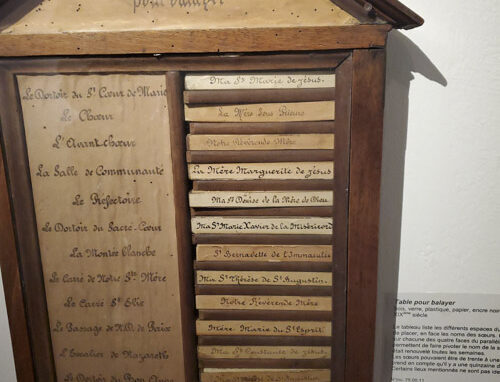 pour balayer
Le Dortoir du St Cœur de Marie
Le Chœur
L'Avant chœur
La Salle de Communauté
Le Réfectoire
Le Dortoir du Sacré-Cœur
La Montée blanche
Le Carré de Notre Ste Mère
Le Carré St Elie
Le Passage de N.D. de Paix
L'Escalier de Nazareth
Le Dortoir du Bon
Ma Sr Marie de Jésus
La Mère Sous Prieure
Notre Révérende Mère
La Mère Marguerite de Jésus
Ma Sr Denise de la Mère de Dieu
Ma Sr Marie Xavier de la Miséricorde
Sr Bernadette de l'Immaculée
Ma Sr Thérèse de St Augustin
Notre Révérende Mère
Mère Marie du St Esprit
Ma Sr Constante de Jésus
Table pour balayer
Bois, verre, plastique, papier, encre noire
XIXème siècle
Le tableau liste les différents espaces du
de placer, en face les noms des sœurs.
sur chacune des quatre faces du parallé
permettent de faire pivoter le nom de la s
était renouvelé toutes les semaines.
Les sœurs peuvent être de trente à
prend en compte qu'il y a une quinzaine
Certains lieux mentionnés ne sont pas